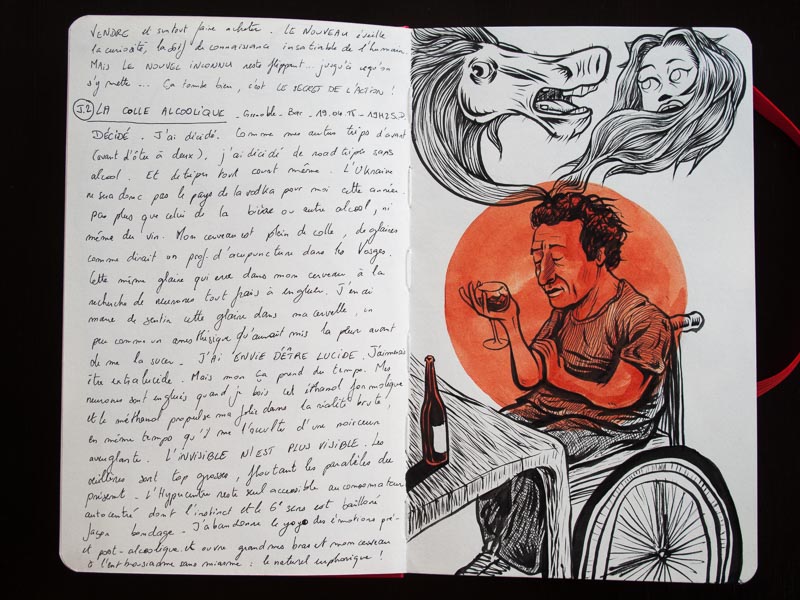 VENDRE et surtout faire acheter. LE NOUVEAU éveille
la curiosité, la soif de connaissance insatiable de l'humain.
MAIS LE NOUVEL INCONNU reste flippant... jusqu'à ce qu'on
s'y mette... Ça tombe bien, c'est LE SECRET DE L'ACTION !
J.2 LA COLLE ALCOOLIQUE - Grenoble - Bar - 19.04.15 - 19H25
DÉCIDÉ. J'ai décidé. Comme mes autres trips d'avant
(avant d'être à deux), j'ai décidé de roadtriper sans
alcool. Et de triper tout court même. L'Ukraine
ne sera donc pas le pays de la vodka pour moi cette année.
pas plus que celui de la bière ou autre alcool, ni
même du vin. Mon cerveau est plein de colle, de glaires
comme dirait un prof. d'acupuncture dans les Vosges.
Cette même glaire qui erre dans mon cerveau à la
recherche de neurones tout frais à engluer. J'en ai
marre de sentir cette glaire dans ma cervelle, un
peu comme un anesthésique qu'aurait mis la pieuvre avant
de me la sucer. J'AI ENVIE D'ÊTRE LUCIDE. J'aimerais
être extralucide. Mais mon ça prend du temps. Mes
neurones sont englués quand je bois cet éthanol formolique
et le méthanol propulse ma folie dans la réalité brute,
en même temps qu'il me l'occulte d'une noirceur
aveuglante. L'INVISIBLE N'EST PLUS VISIBLE. Les
œillères sont trop grosses, floutant les parallèles du
présent. L'Hypercentre reste seul accessible au consommateur
autocentré dont l'instinct et le 6e sens est bâillonné
façon bondage. J'abandonne le yoyo des émotions pré-
et post-alcoolique et ouvre grand mes bras et mon cerveau
à l'enthousiasme sans miasme : le naturel euphorique !